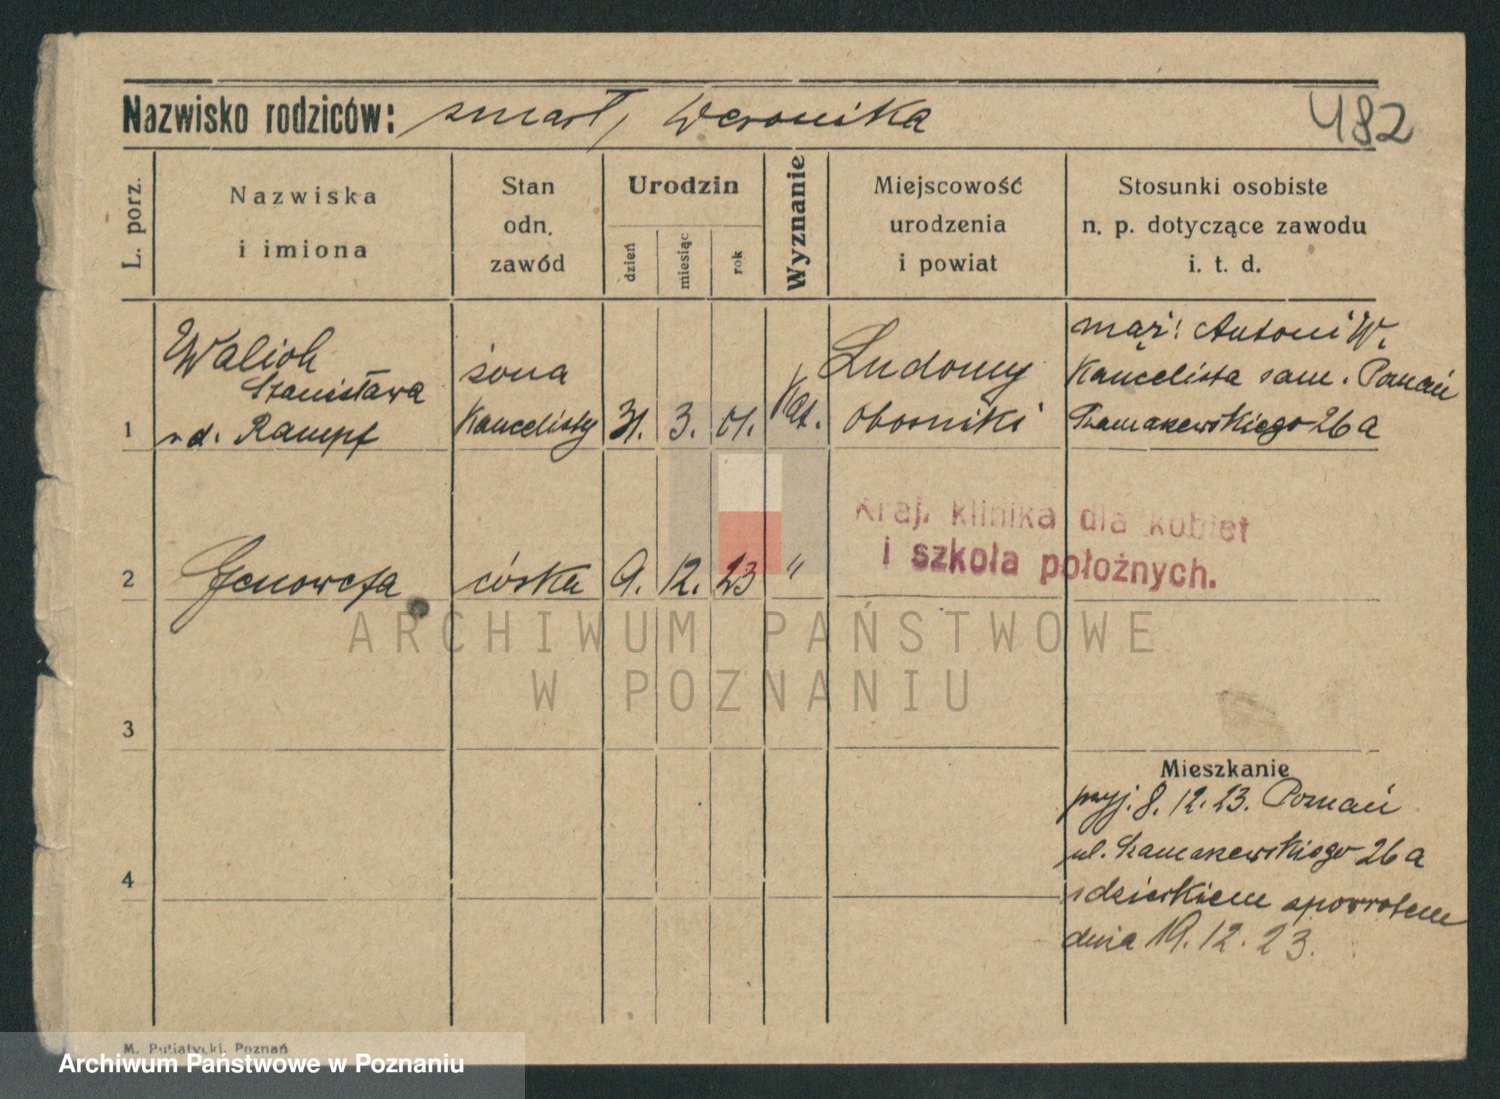 Nazwisko rodziców: zmarł, Weronika
482
L. porz.
Nazwiska
i imiona
Stan
odn.
zawód
Urodzin
dzień
miesiąc
rok
Wyznanie
Miejscowość
urodzenia
i powiat
Stosunki osobiste
n. p. dotyczące zawodu
i. t. d.
1
Walich
Stanisława
Rampf
żona
Kancelisty
31. 3. 01.
Kat.
Ludomy
Oborniki
mąż: Antoni W.
Kancelista zam. Poznań
26a
2
Genowefa
córka
9. 12. 23
"
Kraj. klinika dla kobiet
i szkoła położnych.
3
4
Mieszkanie
przyj. 8. 12. 23. Poznań
ul. 26a
z dzieckiem zpowrotem
dnia 19. 12. 23.
M. Putiatycki, Poznań
ARCHIWUM PAŃSTWOWE
W POZNANIU
Archiwum Państwowe w Poznaniu